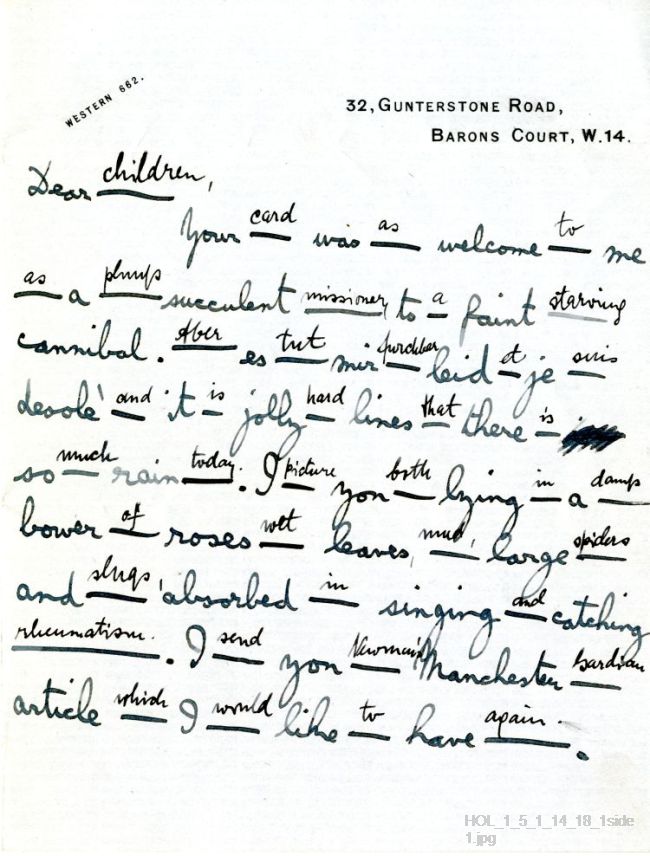 WESTERN 662.
32, GUNTERSTONE ROAD,
BARONS COURT, W.14.
Dear children,
Your card was as welcome to me
as a plump succulent missioner to a faint starving
cannibal. Aber es tut mir furchtbar leid et je suis
desolé and it is jolly hard lines that there is
so much rain today. I picture you both lying in a damp
bower of roses wet leaves, mud, large spiders
and slugs, absorbed in singing and catching
rheumatism. I send you Newman's Manchester Gardian
article which I would like to have again.
HOL_1_5_1_14_18_1side
1.jpg